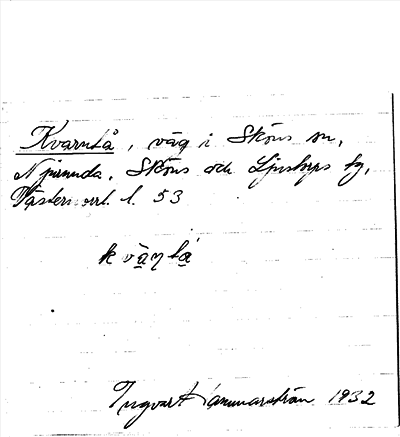 Kvarntå, väg i Sköns sn,
Njurunda, Sköns och Ljustorps tg,
Västernorrl. l. 53
Ingvart Hammarström 1932